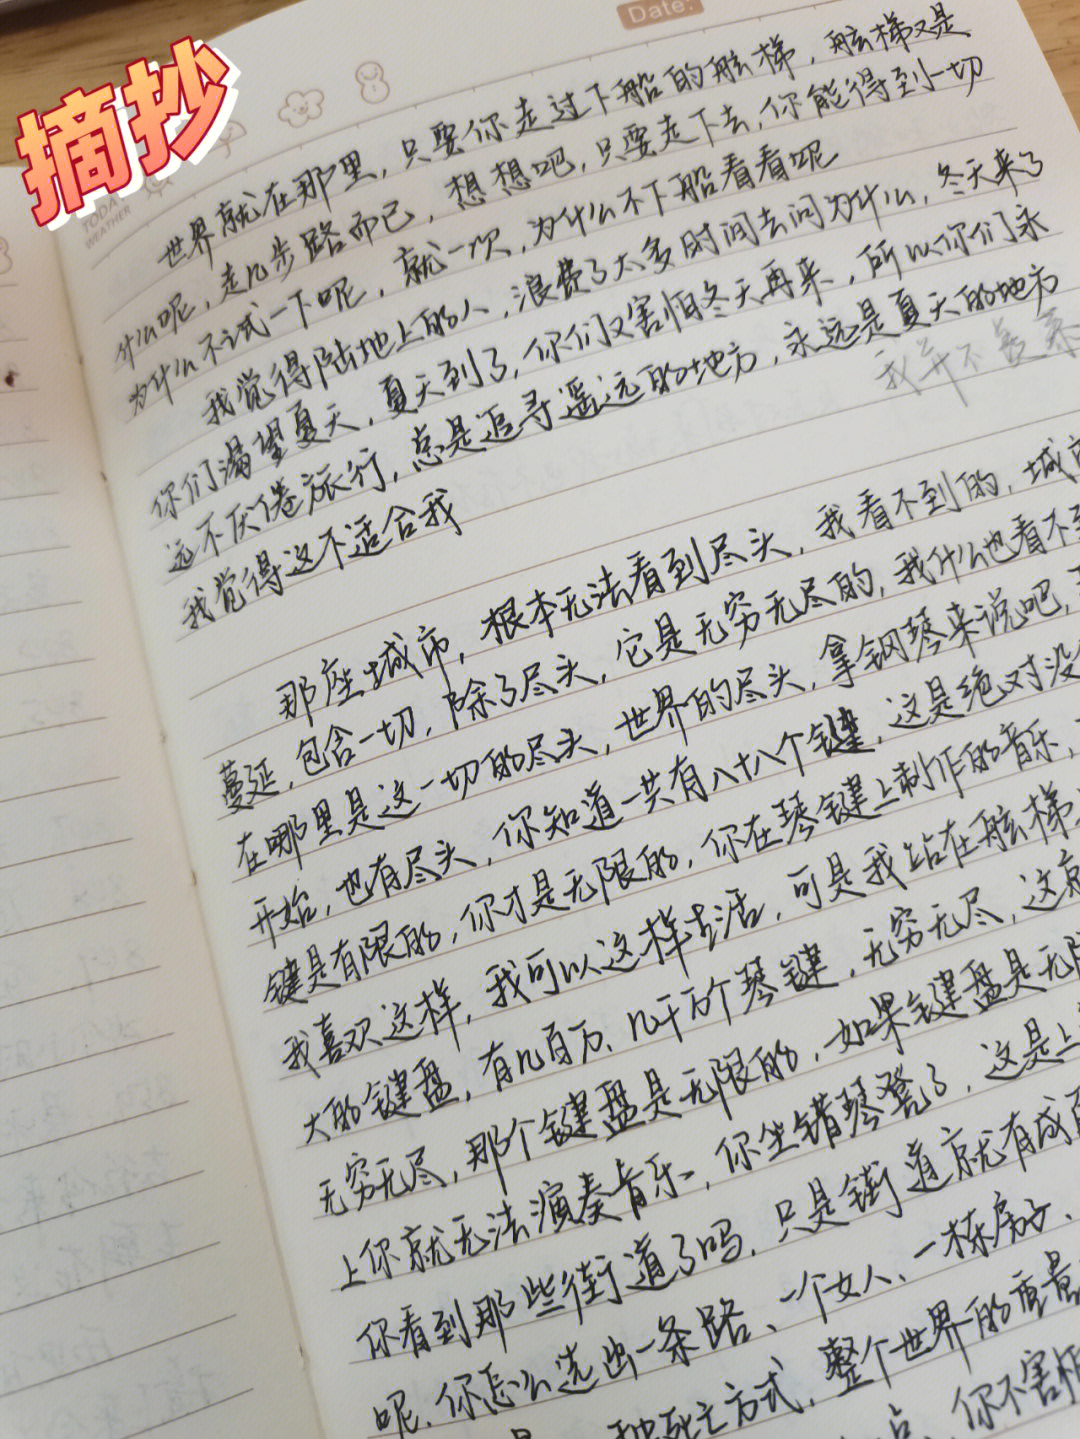 摘抄
Date:
TODAY
WEATHER
世界就在那里，只要你走过下船的舷梯，舷梯又是
什么呢，走几步路而已，想想吧，只要走下去，你能得到一切
为什么不试一下呢，就一次，为什么不下船看看呢
我觉得陆地上的人，浪费了太多时间去问为什么，冬天来了
你们渴望夏天，夏天到了，你们又害怕冬天再来，所以你们永
远不厌倦旅行，总是追寻遥远的地方，永远是夏天的地方
我觉得这不适合我
我并不羡
那座城市，根本无法看到尽头，我看不到的，城市
蔓延，包含一切，除了尽头，它是无穷无尽的，我什么也看不到
在哪里是这一切的尽头，世界的尽头，拿钢琴来说吧，
开始，也有尽头，你知道一共有八十八个键，这是绝对没
键是有限的，你才是无限的，你在琴键上制作的音乐，
我喜欢这样，我可以这样生活，可是我站在舷梯
大的键盘，有几百万、几千万个琴键，无穷无尽，这
无穷无尽，那个键盘是无限的，如果键盘是无限
上你就无法演奏音乐，你坐错琴凳了，这是上
你看到那些街道了吗，只是街道就有成
呢，你怎么选出一条路、一个女人、一栋房子、
死亡方式，整个世界的重量
点，你不害怕